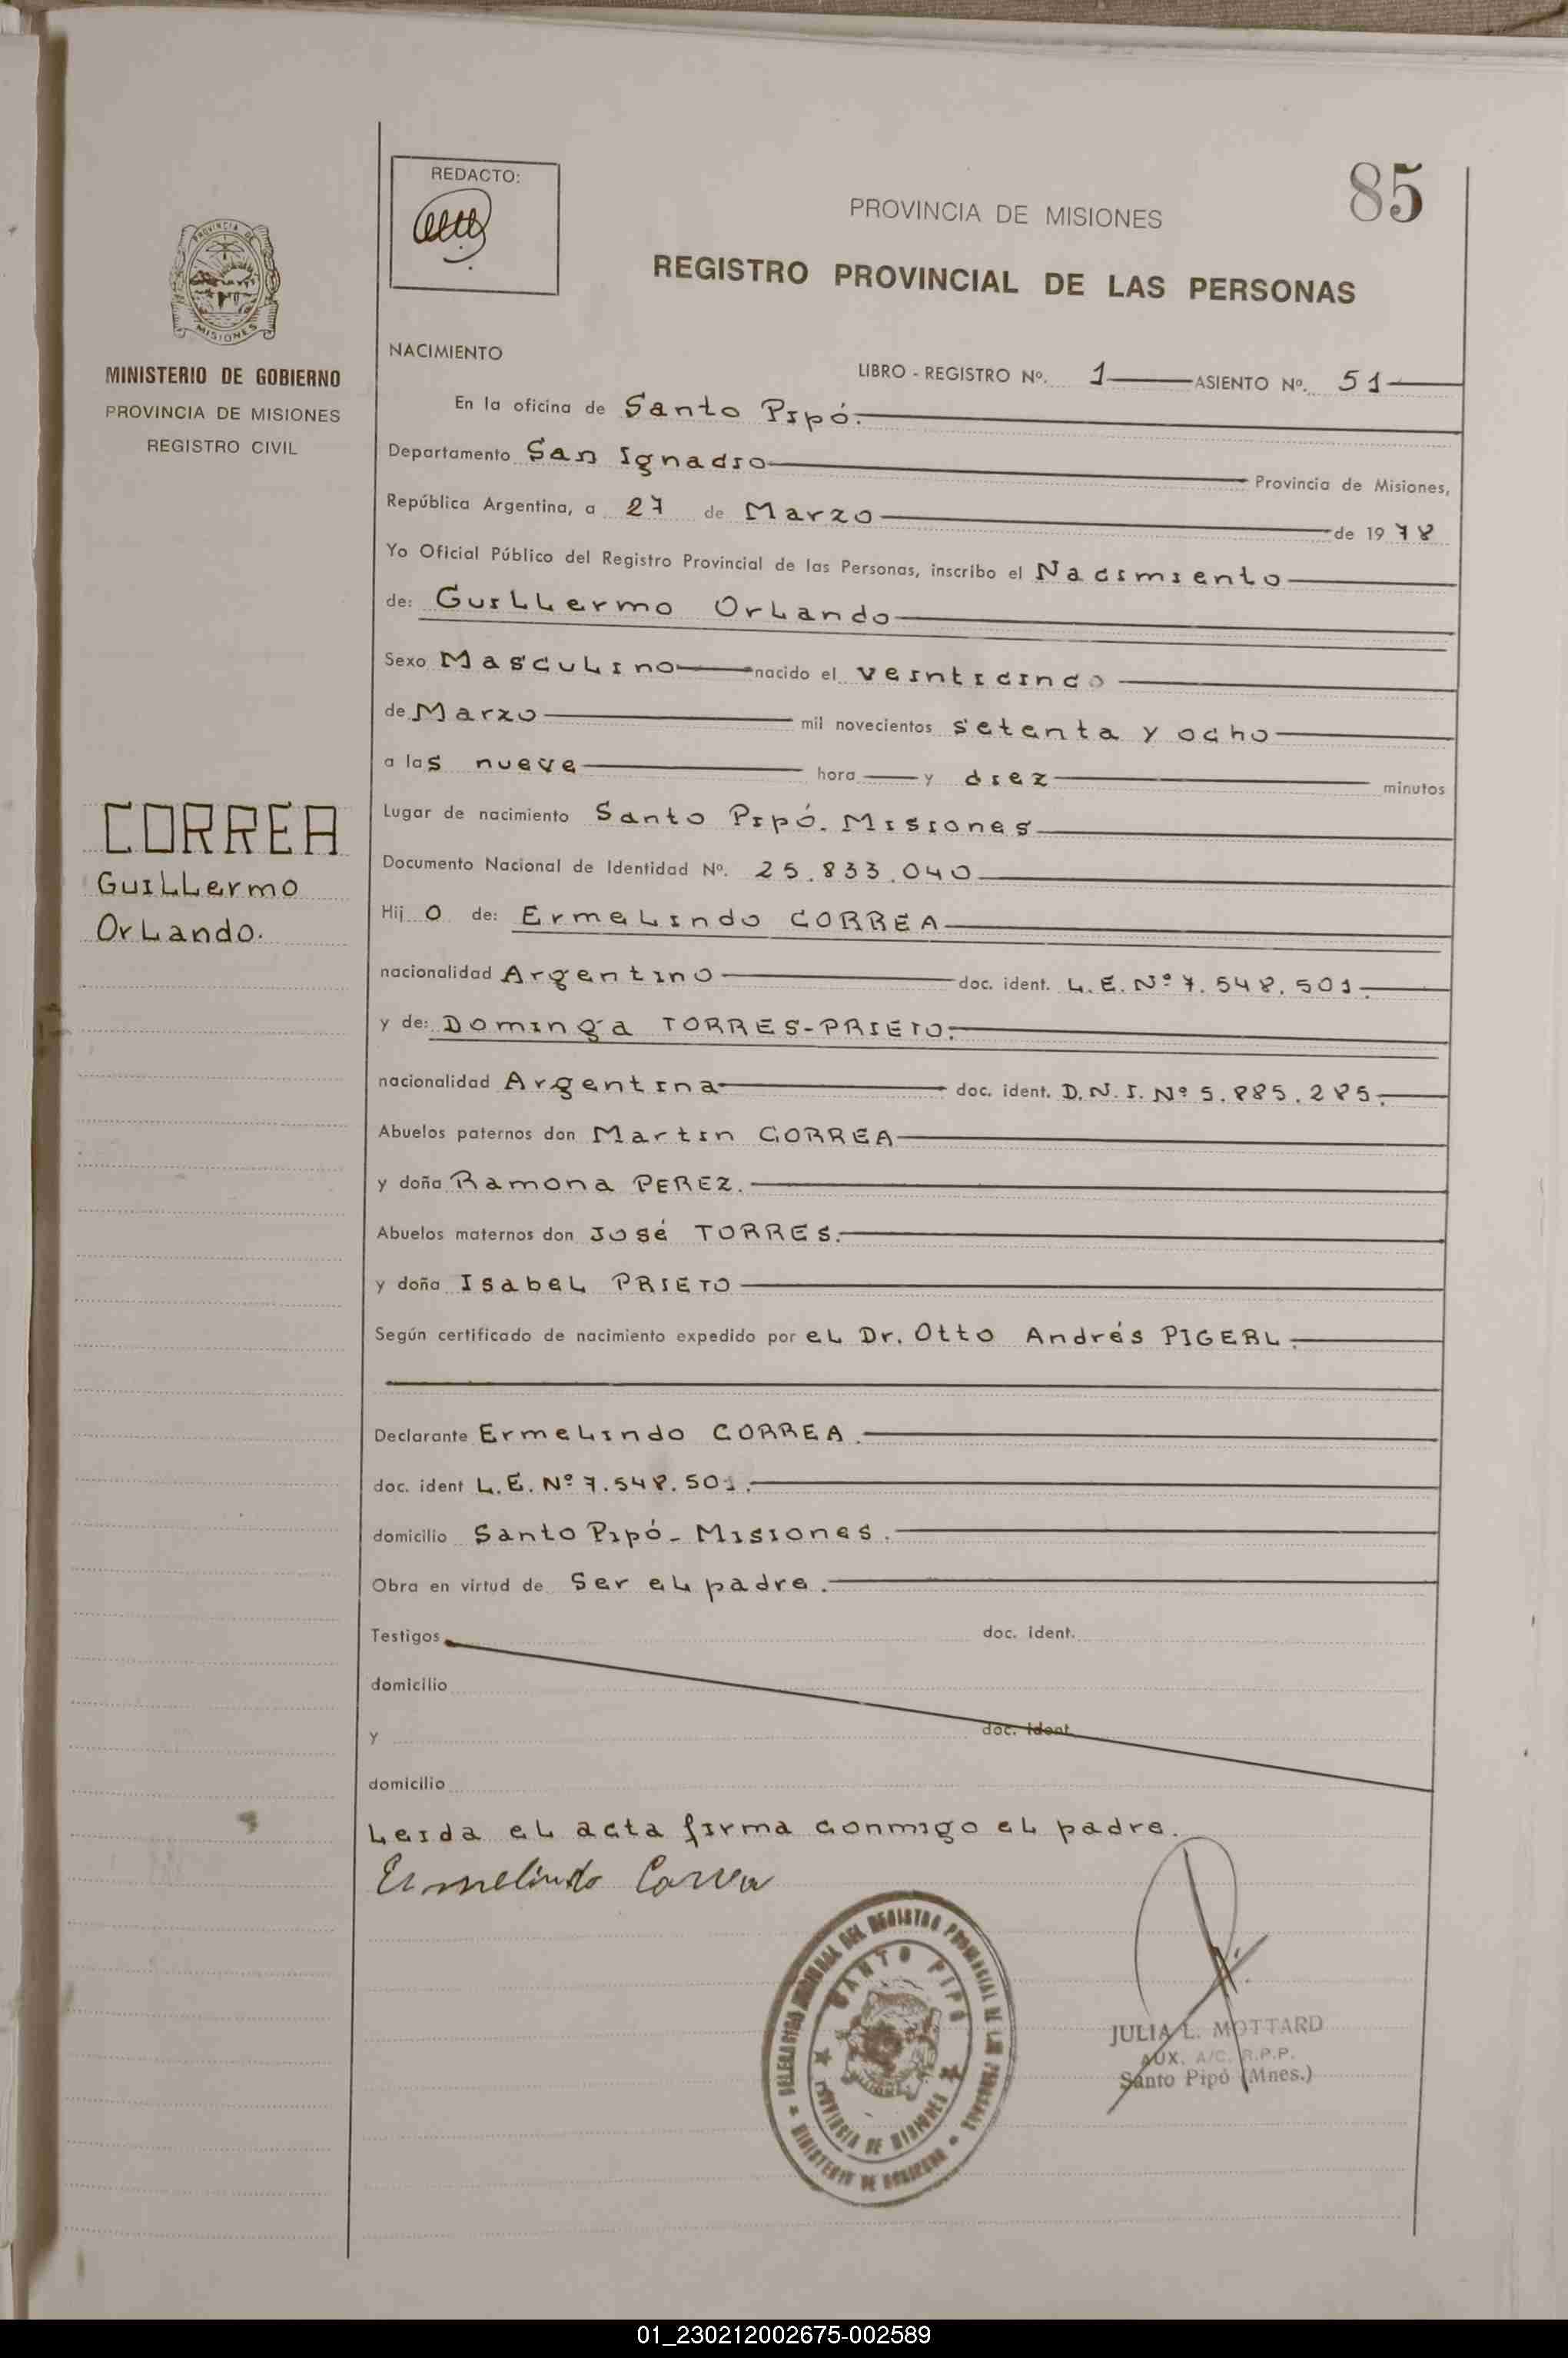 REDACTO:
85
PROVINCIA DE MISIONES
REGISTRO PROVINCIAL DE LAS PERSONAS
PROVINCIA DE
MISIONES
MINISTERIO DE GOBIERNO
PROVINCIA DE MISIONES
REGISTRO CIVIL
CORREA
Guillermo
Orlando.
NACIMIENTO
LIBRO - REGISTRO Nº. 1 ASIENTO Nº. 51
En la oficina de Santo Pipó.
Departamento San Ignacio Provincia de Misiones,
República Argentina, a 27 de Marzo de 1978
Yo Oficial Público del Registro Provincial de las Personas, inscribo el Nacimiento
de: Guillermo Orlando
Sexo Masculino nacido el veinticinco
de Marzo mil novecientos setenta y ocho
a las nueve hora y diez minutos
Lugar de nacimiento Santo Pipó. Misiones
Documento Nacional de Identidad Nº. 25.833.040
Hijo de: Ermelindo CORREA
nacionalidad Argentino doc. ident. L.E. Nº 7.548.501.
y de: Dominga TORRES-PRIETO.
nacionalidad Argentina doc. ident. D.N.I. Nº 5.885.285.
Abuelos paternos don Martin CORREA
y doña Ramona PEREZ.
Abuelos maternos don José TORRES.
y doña Isabel PRIETO
Según certificado de nacimiento expedido por el Dr. Otto Andrés PIGERL.
Declarante Ermelindo CORREA.
doc. ident L.E. Nº 7.548.501.
domicilio Santo Pipó - Misiones.
Obra en virtud de Ser el padre.
Testigos doc. ident.
domicilio
y doc. ident.
domicilio
Leida el acta firma conmigo el padre.
Ermelindo Correa
DEL REGISTRO PROVINCIAL DE LAS PERSONAS
SANTO PIPÓ
PROVINCIA DE MISIONES
MINISTERIO DE GOBIERNO
JULIA L. MOTTARD
AUX. A/C. R.P.P.
Santo Pipó (Mnes.)
01_230212002675-002589